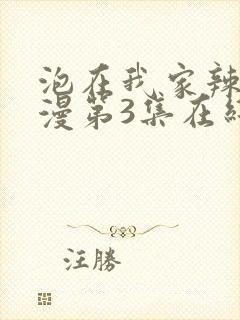 泡在我家辣
漫第3集在
汪勝